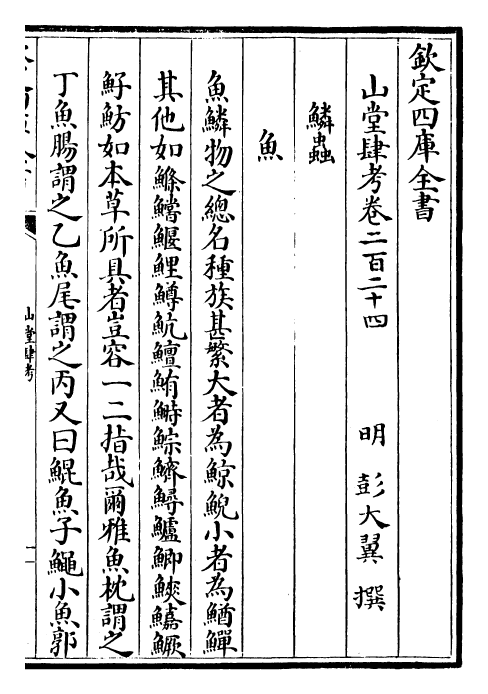 欽定四庫全書
山堂肆考卷二百二十四
明 彭大翼 撰
鱗蟲
魚
魚鱗物之總名種族甚繁大者為鯨鯢小者為鰌鱓
其他如鰷鱨鰋鯉鱒魧鱣鮪鰣鯮鱭鱘鱸鯽鰊鱚鱖
魣魴如本草所具者豈容一二指哉爾雅魚枕謂之
丁魚腸謂之乙魚尾謂之丙又曰鯤魚子鱦小魚郭
山堂肆考
一